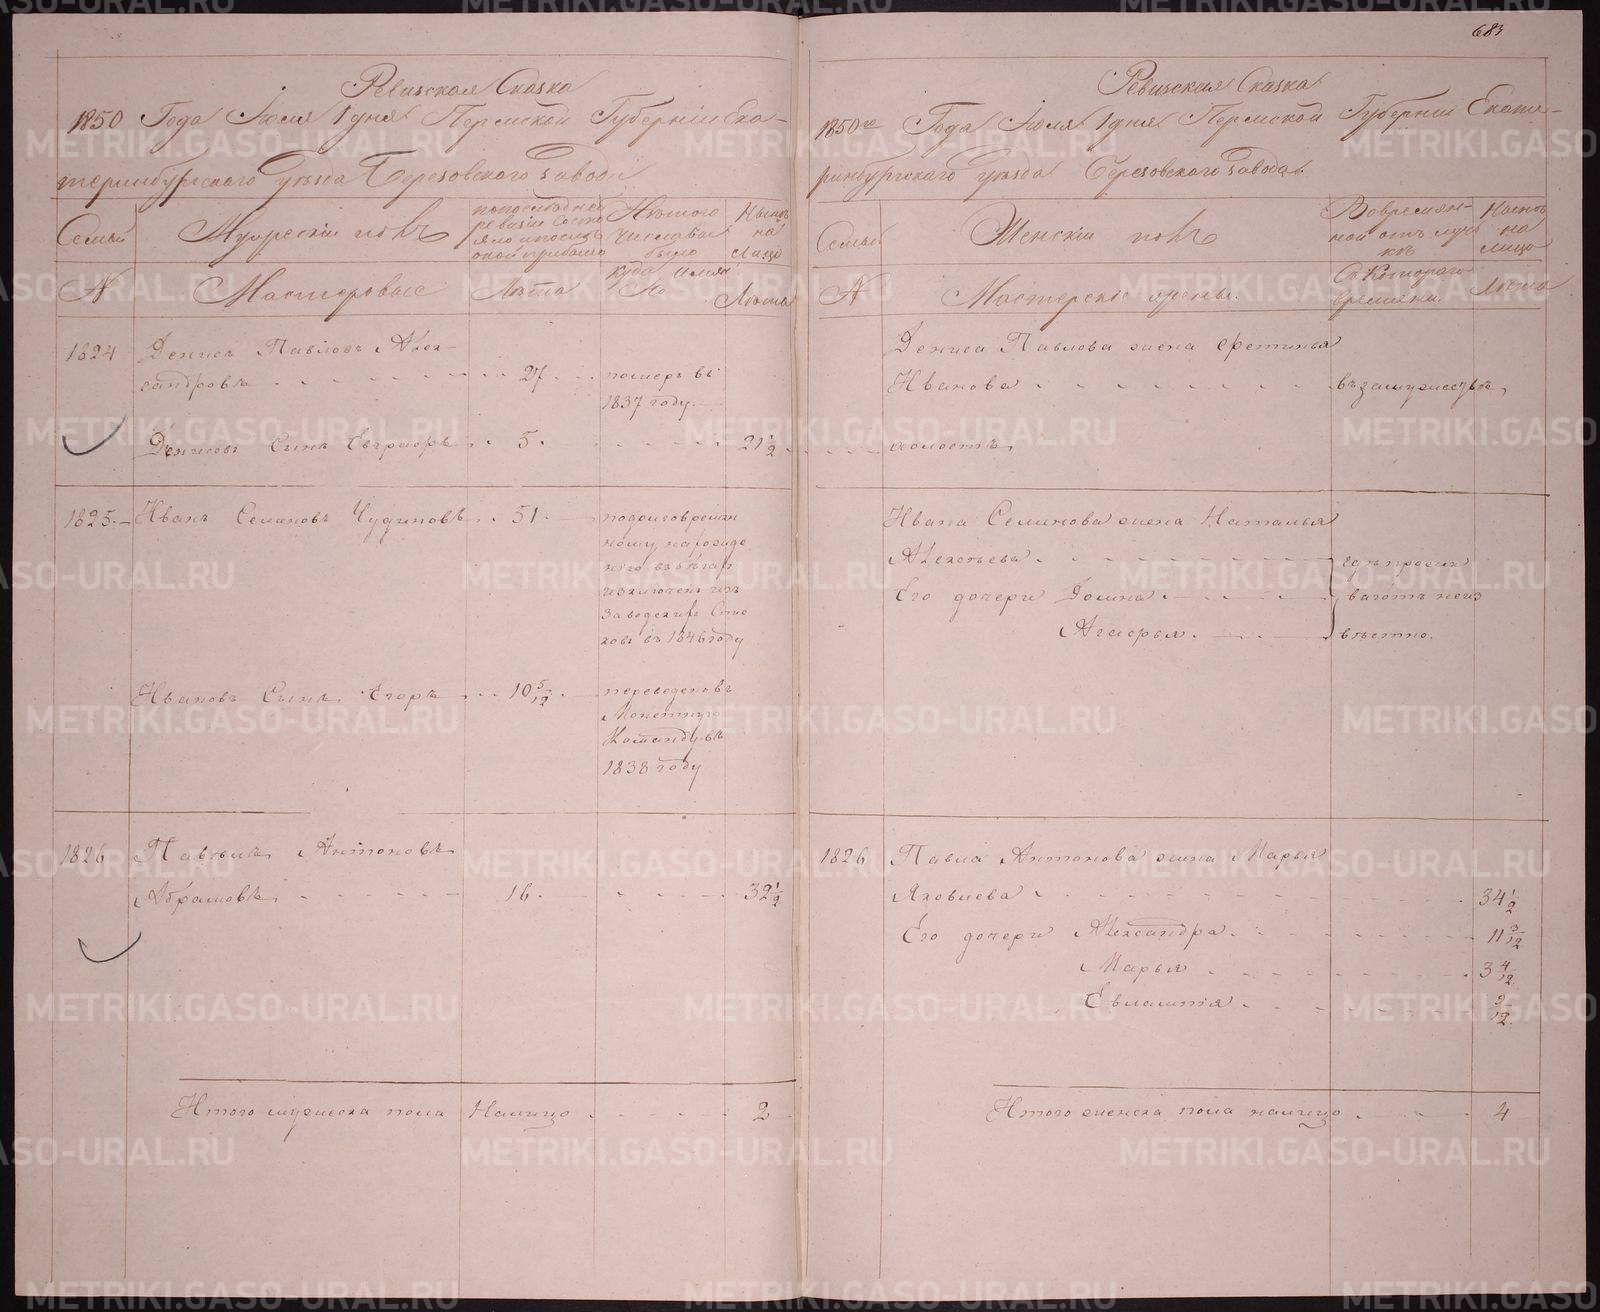 683
Ревизская Сказка
1850 Года Июля 1 дня Пермской Губерніи Ека-
теринбургскаго Уѣзда Березовскаго Завода
Семьи
Мужескій полъ
по последней
ревизіи состо
яло и после
оной прибыло
Изтого
числа выбыло
Нынѣ
на
Лицо
N
Мастеровые
Лѣта
Лѣта
1824
Денисъ Павловъ Алек-
сандровъ 27 померъ въ
1837 году.
Денисовъ Сынъ Евграфъ 5. 21 1/2
1825. Иванъ Семеновъ Чудиновъ 51
исключенъ изъ
заводскихъ Спис
ковъ въ 1846 году
Ивановъ Сынъ Егоръ 10 5/12
переведенъ въ
Команду въ
1838 году
1826 Павелъ Антоновъ
Абрамовъ 16. 32 1/2
Итого мужеска пола Налицо 2
Ревизская Сказка
1850го Года Июля 1 дня Пермской Губерніи Екате-
ринбургскаго Уѣзда Березовскаго Завода
Семьи
Женскій полъ
Во времян-
ной отлуч
кѣ
Нынѣ
на
лицо
N
Мастерскіе жены.
Съ Котораго
времяни
Лѣта
Дениса Павлова жена Фетинья
Иванова въ замужествѣ,
холостъ
Ивана Семенова жена Наталья
Алексѣева
Его дочери Домна
Агафья.
гдѣ прожи
ваютъ неиз
вѣстно.
1826 Павла Антонова жена Марья
Яковлева 34 1/2
Его дочери Александра. 11 3/12
Марья 3 4/12
Евлампія. 9/12
Итого женска пола налицо 4
METRIKI.GASO-URAL.RU